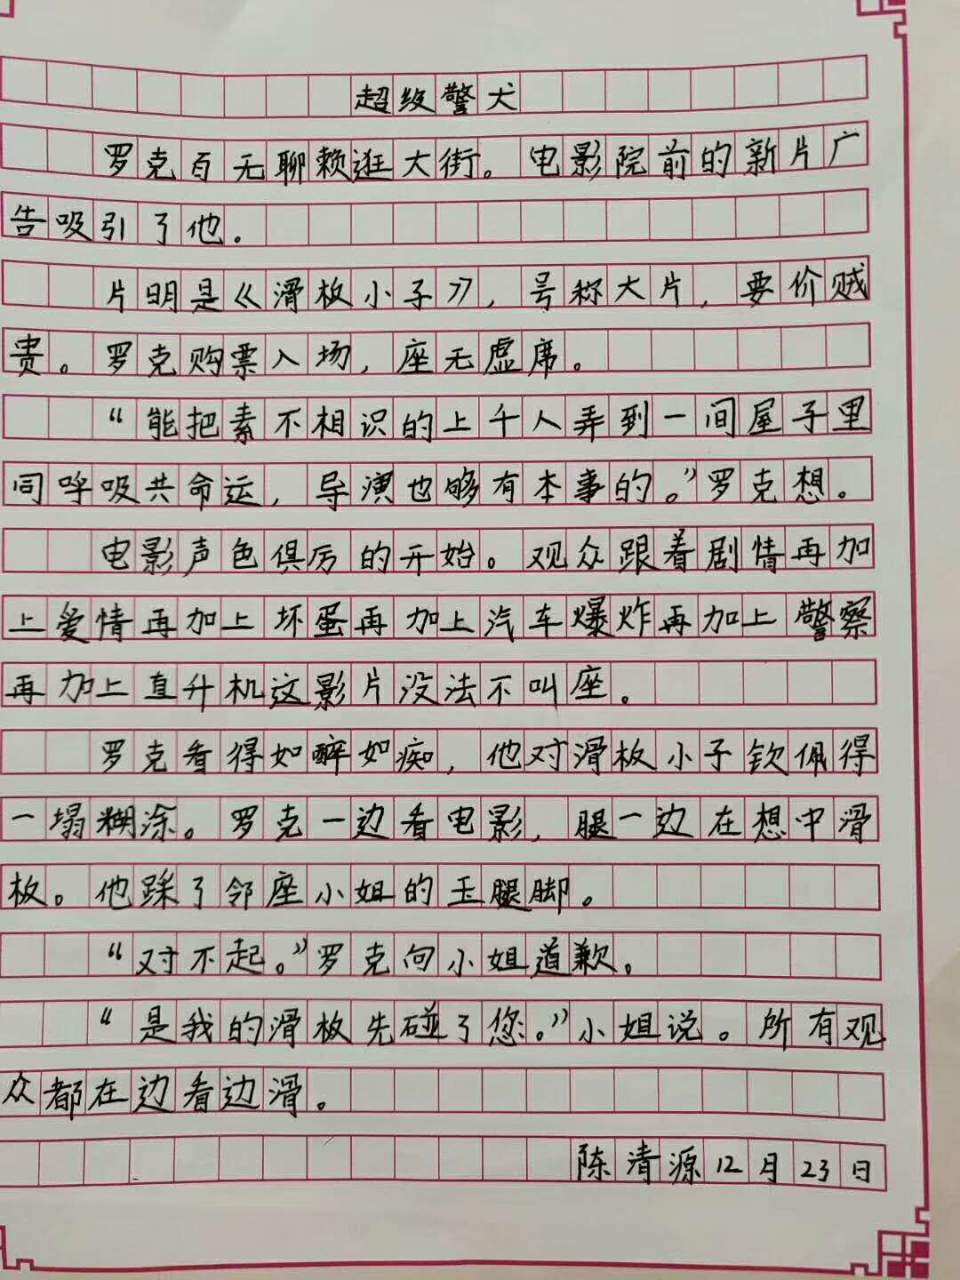 超级警犬
罗克百无聊赖逛大街。电影院前的新片广
告吸引了他。
片明是《滑板小子》,号称大片,要价贼
贵。罗克购票入场,座无虚席。
“能把素不相识的上千人弄到一间屋子里
同呼吸共命运,导演也够有本事的。”罗克想。
电影声色俱厉的开始。观众跟着剧情再加
上爱情再加上坏蛋再加上汽车爆炸再加上警察
再加上直升机这影片没法不叫座。
罗克看得如醉如痴,他对滑板小子钦佩得
一塌糊涂。罗克一边看电影,腿一边在想中滑
板。他踩了邻座小姐的玉腿脚。
“对不起。”罗克向小姐道歉。
“是我的滑板先碰了您。”小姐说。所有观
众都在边看边滑。
陈清源12月23日